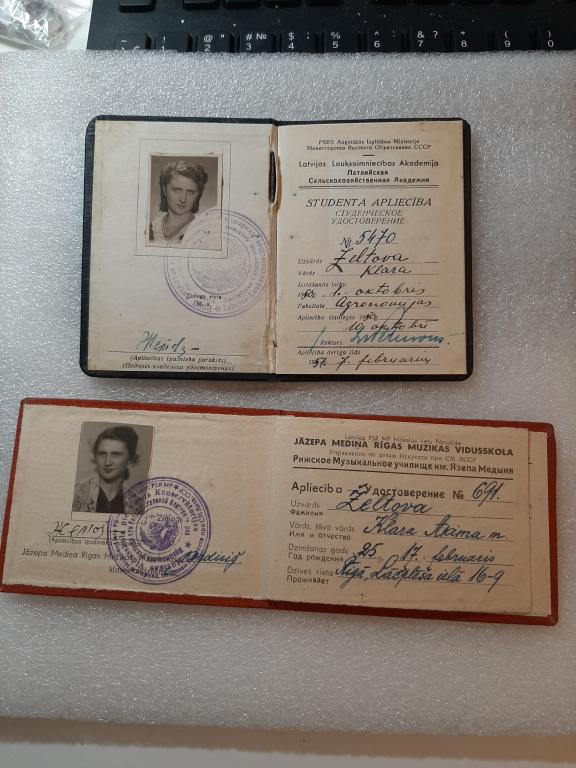 ! 1
@ " 2
# № 3
$ ; 4
% : 5
^ 6
& ? 7
* 8
( 9
) 0
PSRS Augstākās Izglītības Ministrija
Министерство Высшего Образования СССР
Latvijas Lauksaimniecības Akadēmija
Латвийская
Сельскохозяйственная Академия
STUDENTA APLIECĪBA
СТУДЕНЧЕСКОЕ
УДОСТОВЕРЕНИЕ
№ 5470
Uzvārds Zeltova
Vārds Klara
Iestāšanās laiks
1. oktobris
Fakultāte Agronomijas
Apliecība izsniegta
10. oktobrī
Rektors
Apliecība derīga līdz
1951. 7. februarim
Zīmoga vieta
(Apliecības īpašnieka paraksts)
(Подпись владельца удостоверения)
Latvijas PSR MP Mākslas Lietu Pārvalde
JĀZEPA MEDIŅA RĪGAS MUZIKAS VIDUSSKOLA
Управление по делам Искусств при СМ ЛССР
Рижское Музыкальное училище им. Язепа Медыня
Apliecība Удостоверение № 691.
Uzvārds Zeltova
Фамилия
Vārds, tēva vārds Klara Akima m.
Имя и отчество
Dzimšanas gads 25. g. 17. februaris
Год рождения
Dzīves vieta Rīgā, Lāčplēša ielā 16-9
Проживает
(Apliecības īpašnieka
Jāzepa Mediņa Rīgas Muzikas